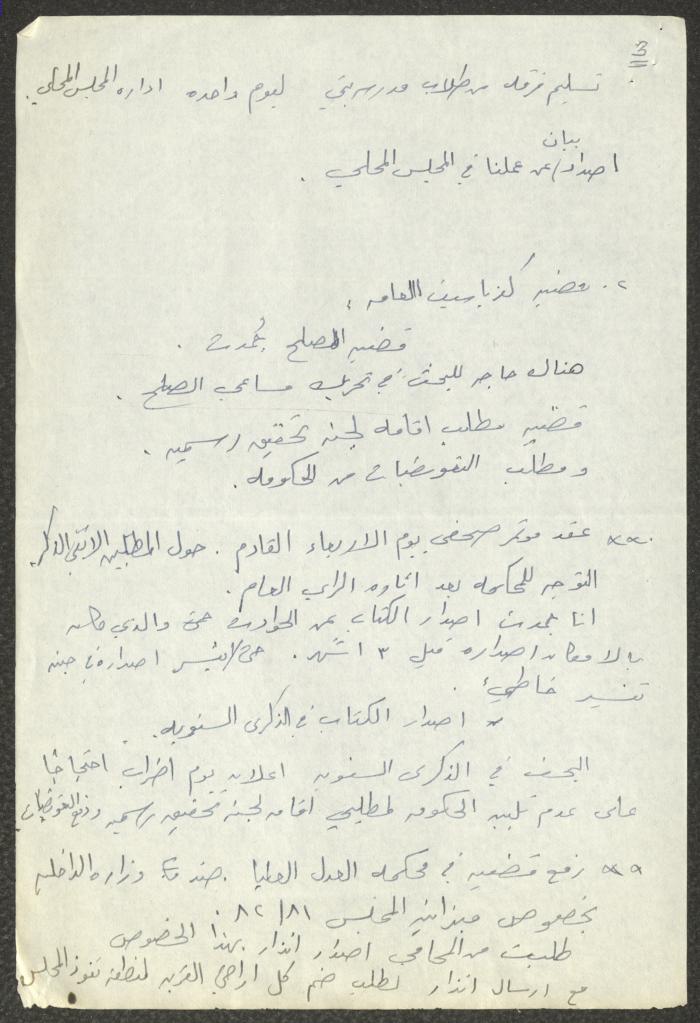 3
تسليم فرقه من طلاب مدرسه ليوم واحده اداره المجلس المحلي.
بيان
اصدار / عن عملنا في المجلس المحلي .
٢. قضيه كفر ياسيف العامه :
قضيه الصلح جُمدت .
هناك حاجه للبحث في تحريك مساعي الصلح .
قضيه مطلب اقامه لجنه تحقيق رسميه .
ومطلب التعويضات من الحكومه .
×× عقد موتمر صحفي يوم الاربعاء القادم . حول المطلبين الانفي الذكر.
التوجه للمحكمه بعد اثاره الراي العام .
انا جمدت اصدار الكتاب عن الحوادث حتى والذي كان
بالامكان اصداره قبل ٣ اشهر . حتى لا يُفسر اصداره في حينه
تفسير خاطئ .
× اصدار الكتاب في الذكرى السنويه .
البحث في الذكرى السنويه اعلان يوم اضراب احتجاجًا
على عدم تلبيه الحكومه لمطلبي اقامه لجنه تحقيق رسميه ودفع التعويضات
×× رفع قضيه في محكمه العدل العليا ضد وزاره الداخليه
بخصوص ميزانيه المجلس ٨٢/٨١ .
طلبت من المحامي اصدار انذار بهذا الخصوص
مع ارسال انذار لطلب ضم كل اراضي القريه لمنطقه نفوذ المجلس